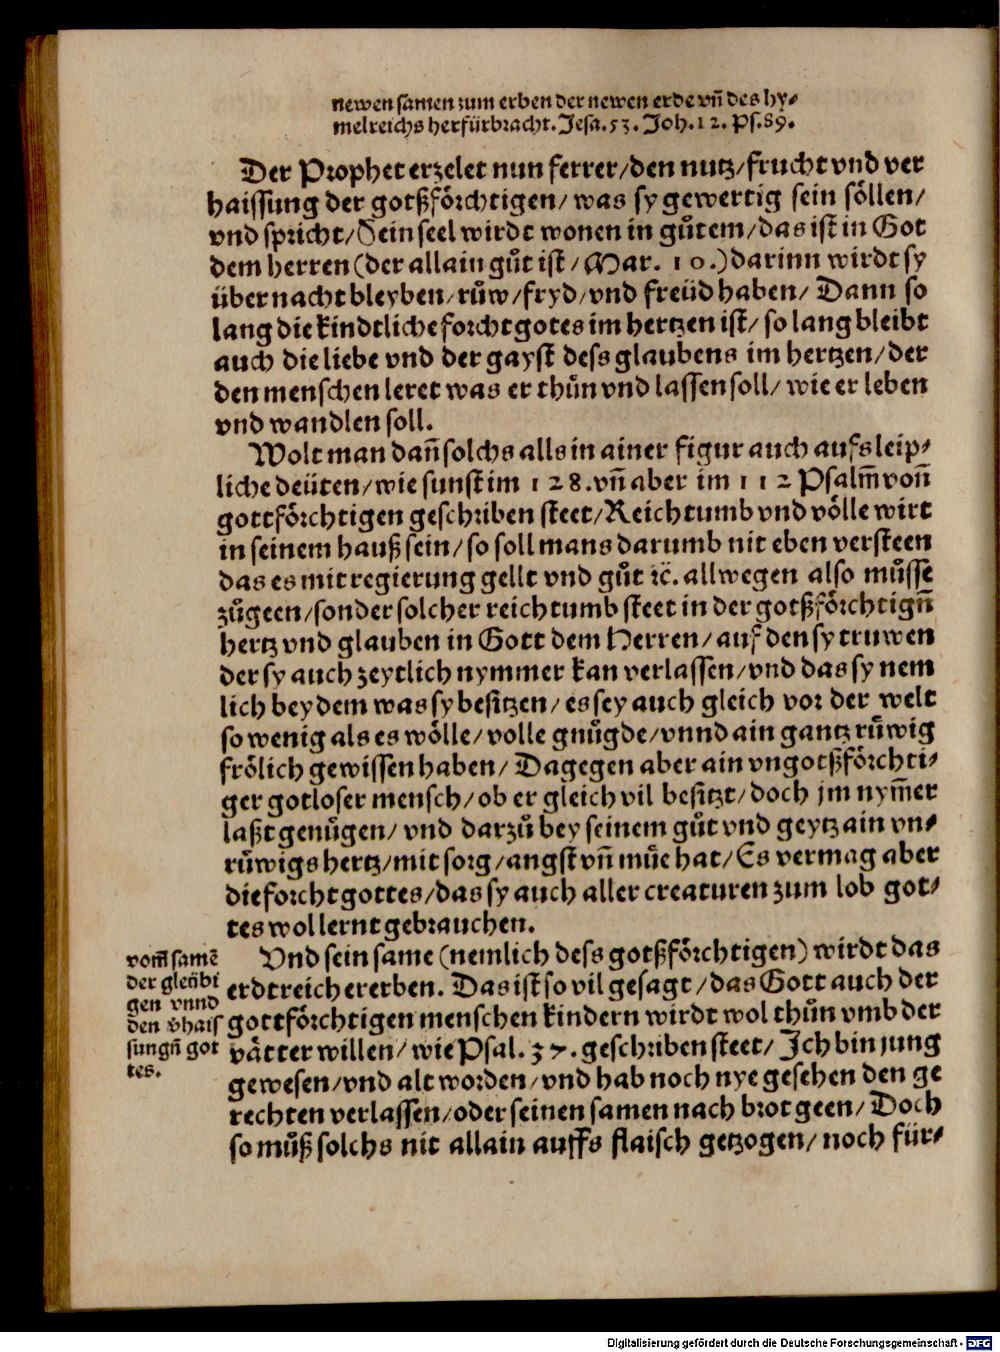 newen samen zum erben der newen erde vñ des hy⸗
melreichs herfürbracht. Jesa. 53. Joh. 12. Ps. 89.
Der Prophet erzelet nun ferrer/ den nutz/ frucht vnd ver
haissung der gotßförchtigen/ was sy gewertig sein söllen/
vnd spricht/ Sein seel wirdt wonen in gůtem/ das ist in Got
dem herren (der allain gůt ist/ Mar. 10.) darinn wirdt sy
über nacht bleyben/ růw/ fryd/ vnd freüd haben/ Dann so
lang die kindtliche forcht gotes im hertzen ist/ so lang bleibt
auch die liebe vnd der gayst dess glaubens im hertzen/ der
den menschen leret was er thůn vnd lassen soll/ wie er leben
vnd wandlen soll.
Wolt man dañ solchs alls in ainer figur auch aufs leip⸗
liche deüten/ wie sunst im 128. vñ aber im 112 Psalm̃ voñ
gottförchtigen geschriben steet/ Reichtumb vnd völle wirt
in seinem hauß sein/ so soll mans darumb nit eben versteen
das es mit regierung gellt vnd gůt ꝛc̃. allwegen also můsse
zůgeen/ sonder solcher reichtumb steet in der gotßförchtigñ
hertz vnd glauben in Gott dem Herren/ auf den sy truwen
der sy auch zeytlich nymmer kan verlassen/ vnd das sy nem
lich bey dem was sy besitzen/ es sey auch gleich vor der welt
so wenig als es wölle/ volle gnůgde/ vnnd ain gantz růwig
frölich gewissen haben/ Dagegen aber ain vngotßförchti⸗
ger gotloser mensch/ ob er gleich vil besitzt/ doch jm nym̃er
laßt genůgen/ vnd darzů bey seinem gůt vnd geytz ain vn⸗
růwigs hertz/ mit sorg/ angst vñ můe hat/ Es vermag aber
die forcht gottes/ das sy auch aller creaturen zum lob got⸗
tes wol lernt gebrauchen.
Vnd sein same (nemlich dess gotßförchtigen) wirdt das
erdtreich ererben. Das ist so vil gesagt/ das Gott auch der
gottförchtigen menschen kindern wirdt wol thůn vmb der
vätter willen/ wie Psal. 37. geschriben steet/ Ich bin jung
gewesen/ vnd alt worden/ vnd hab noch nye gesehen den ge
rechten verlassen/ oder seinen samen nach brot geen/ Doch
so můß solchs nit allain auffs flaisch getzogen/ noch für⸗
vom̃ samẽ
der gleübi
gen vnnd
den v̈hais
sungñ got
tes.
Digitalisierung gefördert durch die Deutsche Forschungsgemeinschaft - DFG